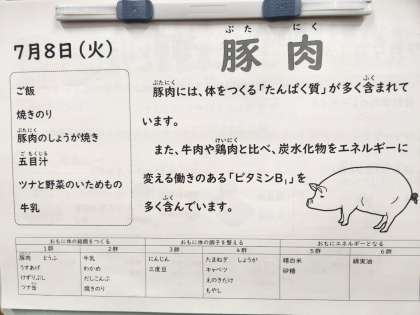 7月8日(火)
ぶた にく
豚肉
ご飯
焼きのり
ぶたにく
豚肉のしょうが焼き
ごもくじる
五目汁
ツナと野菜のいためもの
牛乳
ぶたにく ふく
豚肉には、体をつくる「たんぱく質」が多く含まれて
います。
けいにく
また、牛肉や鶏肉と比べ、炭水化物をエネルギーに
変える働きのある「ビタミンB₁」を
ふく
多く含んでいます。
おもに体の組織をつくる おもに体の調子を整える おもにエネルギーとなる
1群 2群 3群 4群 5群 6群
豚肉 とうふ 牛乳 にんじん たまねぎ しょうが 精白米 綿実油
うすあげ わかめ 三度豆 キャベツ 砂糖
けずりぶし だしこんぶ えのきたけ
ツナ缶 焼きのり もやし